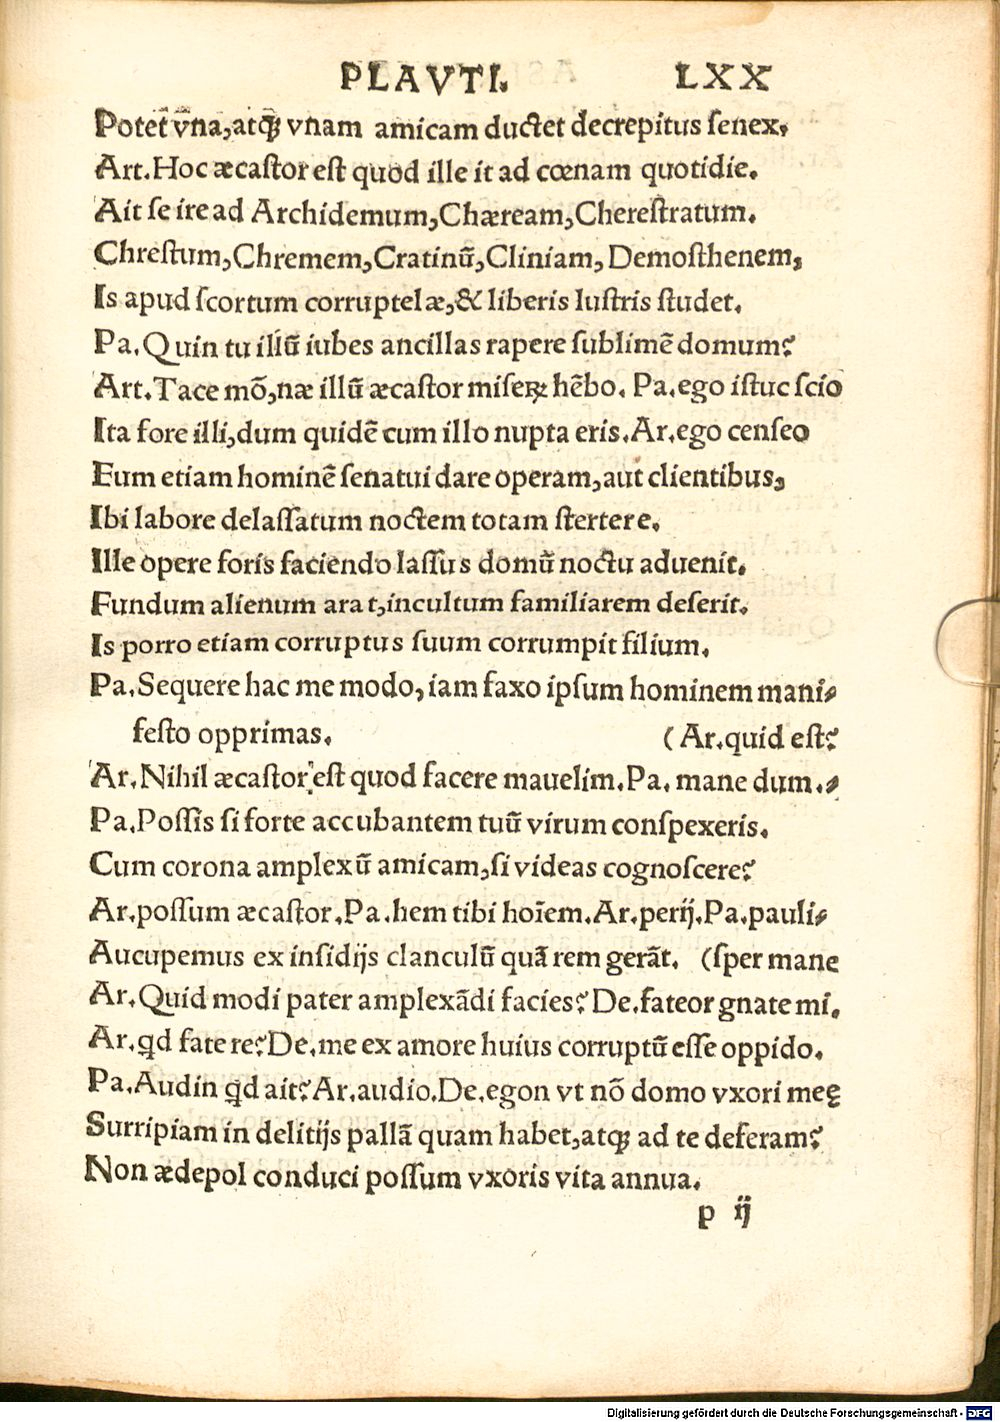 PLAVTI. LXX
Potet̃ vña,atq̃ʒ vnam amicam ductet decrepitus ſenex.
Art.Hoc æcaſtor eſt quod ille it ad cœnam quotidie.
Ait ſe ire ad Archidemum,Chæream,Chereſtratum.
Chreſtum,Chremem,Cratinũ,Cliniam,Demoſthenem,
Is apud ſcortum corruptelæ,& liberis luſtris ſtudet.
Pa.Quin tu illũ iubes ancillas rapere ſublimẽ domum?
Art.Tace mõ,næ illũ æcaſtor miſeꝝ hẽbo. Pa.ego iſtuc ſcio
Ita fore illi,dum quidẽ cum illo nupta eris.Ar.ego cenſeo
Eum etiam hominẽ ſenatui dare operam,aut clientibus,
Ibi labore delaſſatum noctem totam ſtertere.
Ille opere foris faciendo laſſus domũ noctu aduenit.
Fundum alienum arat,incultum familiarem deſerit.
Is porro etiam corruptus ſuum corrumpit filium.
Pa.Sequere hac me modo,iam faxo ipſum hominem mani⸗
feſto opprimas. (Ar.quid eſt?
Ar.Nihil æcaſtor eſt quod facere mauelim.Pa. mane dum.⸗
Pa.Poſſis ſi forte accubantem tuũ virum conſpexeris.
Cum corona amplexũ amicam,ſi videas cognoſcere?
Ar.poſſum æcaſtor.Pa.hem tibi hoĩem.Ar.perij.Pa.pauli⸗
Aucupemus ex inſidijs clanculũ quã rem gerãt. (ſper mane
Ar.Quid modi pater amplexãdi facies? De.fateor gnate mi.
Ar.qd fatere?De.me ex amore huius corruptũ eſſe oppido.
Pa.Audin qd ait?Ar.audio.De.egon vt nõ domo vxori meę
Surripiam in delitijs pallã quam habet,atqʒ ad te deferam?
Non ædepol conduci poſſum vxoris vita annua.
p ij
Digitalisierung gefördert durch die Deutsche Forschungsgemeinschaft - DFG